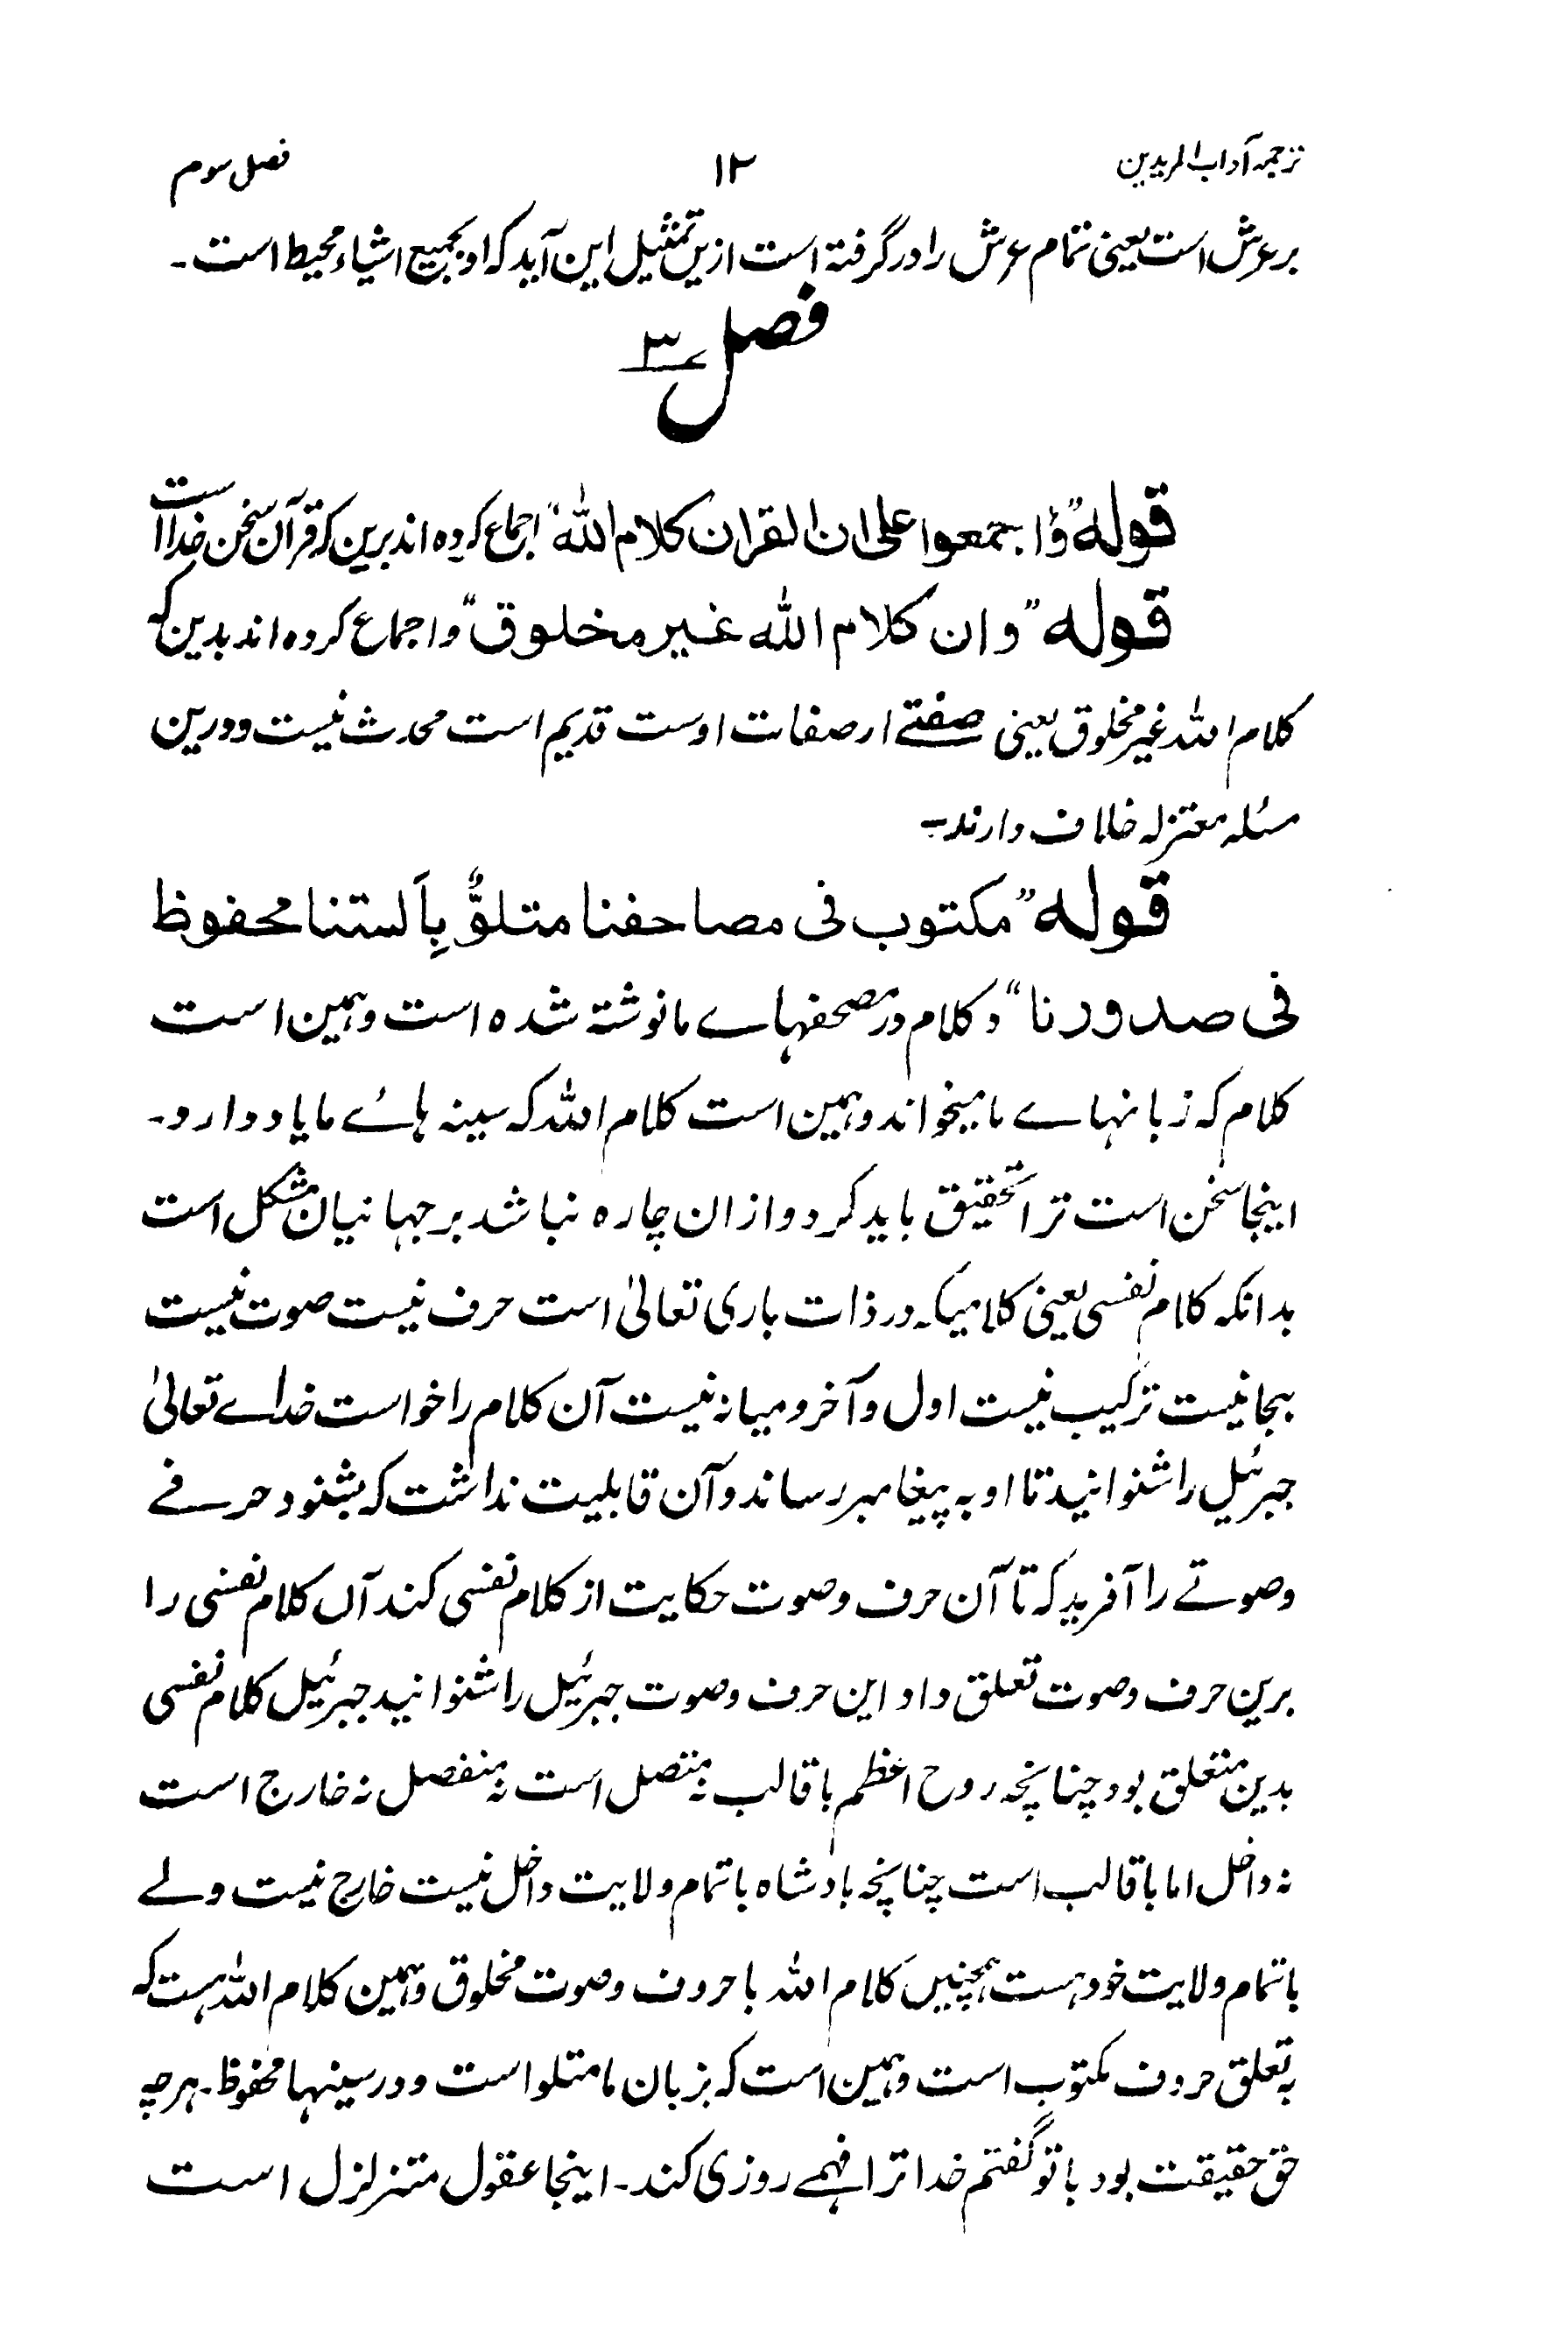 ترجمہ آداب المریدین ۱۲ فصل سوم
بر عرش است یعنی تمام عرش را در گرفتہ است ازین تمثیل این آید کہ او بجمیع اشیاء محیط است۔
فصل ۳
قولہ "و اجمعوا علی ان القران کلام اللہ" اجماع کردہ اند برین کہ قرآن سخن خدا است
قولہ "وان کلام اللہ غیر مخلوق" و اجماع کردہ اند بدین کہ
کلام اللہ غیر مخلوق یعنی صفتے ار صفات اوست قدیم است محدث نیست و درین
مسئلہ معتزلہ خلاف دارند۔
قولہ "مکتوب فی مصاحفنا متلوٌّ بِاَلستنا محفوظ
فی صدورنا" و کلام در مصحفہاے ما نوشتہ شدہ است و ہمین است
کلام کہ زبانہاے ما میخواند و ہمین است کلام اللہ کہ سینہ ہائے ما یاد دارد۔
اینجا سخن است ترا تحقیق باید کرد و از ان چارہ نباشد بر جہانیان مشکل است
بدانکہ کلام نفسی یعنی کلامیکہ در ذات باری تعالیٰ است حرف نیست صوت نیست
بجا نیست ترکیب نیست اول و آخر و میانہ نیست آن کلام را خواست خداے تعالیٰ
جبرئیل را شنوانید تا او بہ پیغامبر رساند و آن قابلیت نداشت کہ بشنود حرفے
و صوتے را آفرید کہ تا آن حرف و صوت حکایت از کلام نفسی کند آں کلام نفسی را
برین حرف و صوت تعلق داد این حرف و صوت جبرئیل را شنوانید جبرئیل کلام نفسی
بدین متعلق بود چنانچہ روح اعظم با قالب نہ متصل است نہ منفصل نہ خارج است
نہ داخل اما با قالب است چنانچہ بادشاہ با تمام ولایت داخل نیست خارج نیست ولے
با تمام ولایت خود ہست ہمچنیں کلام اللہ با حروف و صوت مخلوق و ہمین کلام اللہ ہست کہ
بہ تعلق حروف مکتوب است و ہمین است کہ بزبان ما متلو است و در سینہا محفوظ۔ ہر چہ
حق حقیقت بود با تو گفتم خدا ترا فہمے روزی کند۔ اینجا عقول متزلزل است